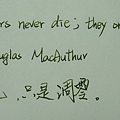 ers never die; they on
uglas MacAuthur
只是凋零。